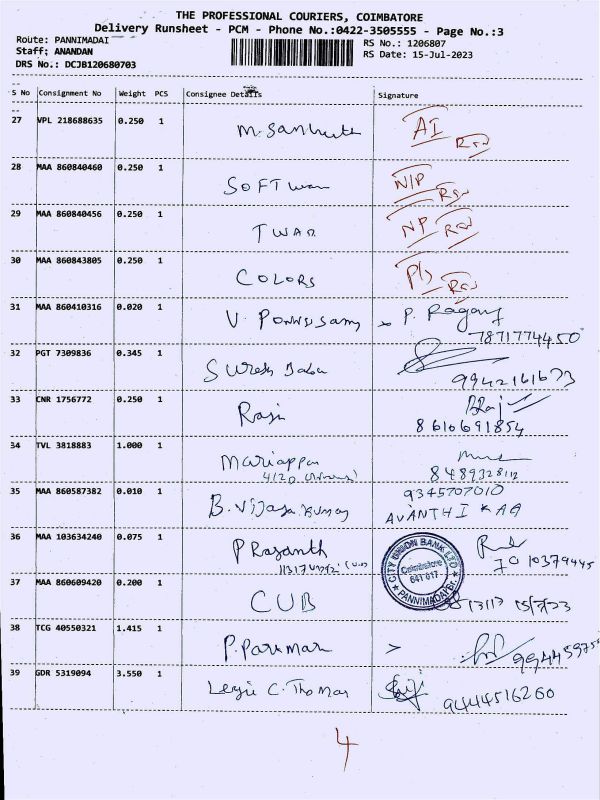 THE PROFESSIONAL COURIERS, COIMBATORE
Delivery Runsheet - PCM - Phone No.:0422-3505555 - Page No.:3
Route: PANNIMADAI
RS No.: 1206807
Staff; ANANDAN
RS Date: 15-Jul-2023
DRS No.: DCJB120680703
S No Consignment No Weight PCS Consignee Details Signature
27 VPL 218688635 0.250 1 AI
28 MAA 860840460 0.250 1 SOFTwar N/P
29 MAA 860840456 0.250 1 TWAR NP
30 MAA 860843805 0.250 1 COLORS
31 MAA 860410316 0.020 1 V. Ponnusamy P.
7871774450
32 PGT 7309836 0.345 1 Suresh Babu
9942161673
33 CNR 1756772 0.250 1 Raji BRaj
8610691854
34 TVL 3818883 1.000 1 Mariappan
4/20 8489328112
35 MAA 860587382 0.010 1 B. Vijaya Kumar 9345707010
AVANTHIKAA
36 MAA 103634240 0.075 1 Prasanth
7010379445
CITY UNION BANK LTD
Coimbatore
641 017
PANNIMADAI Br.
37 MAA 860609420 0.200 1 CUB 15/7/23
38 TCG 40550321 1.415 1 P.
39 GDR 5319094 3.550 1 C. Thomas
9444516260
4